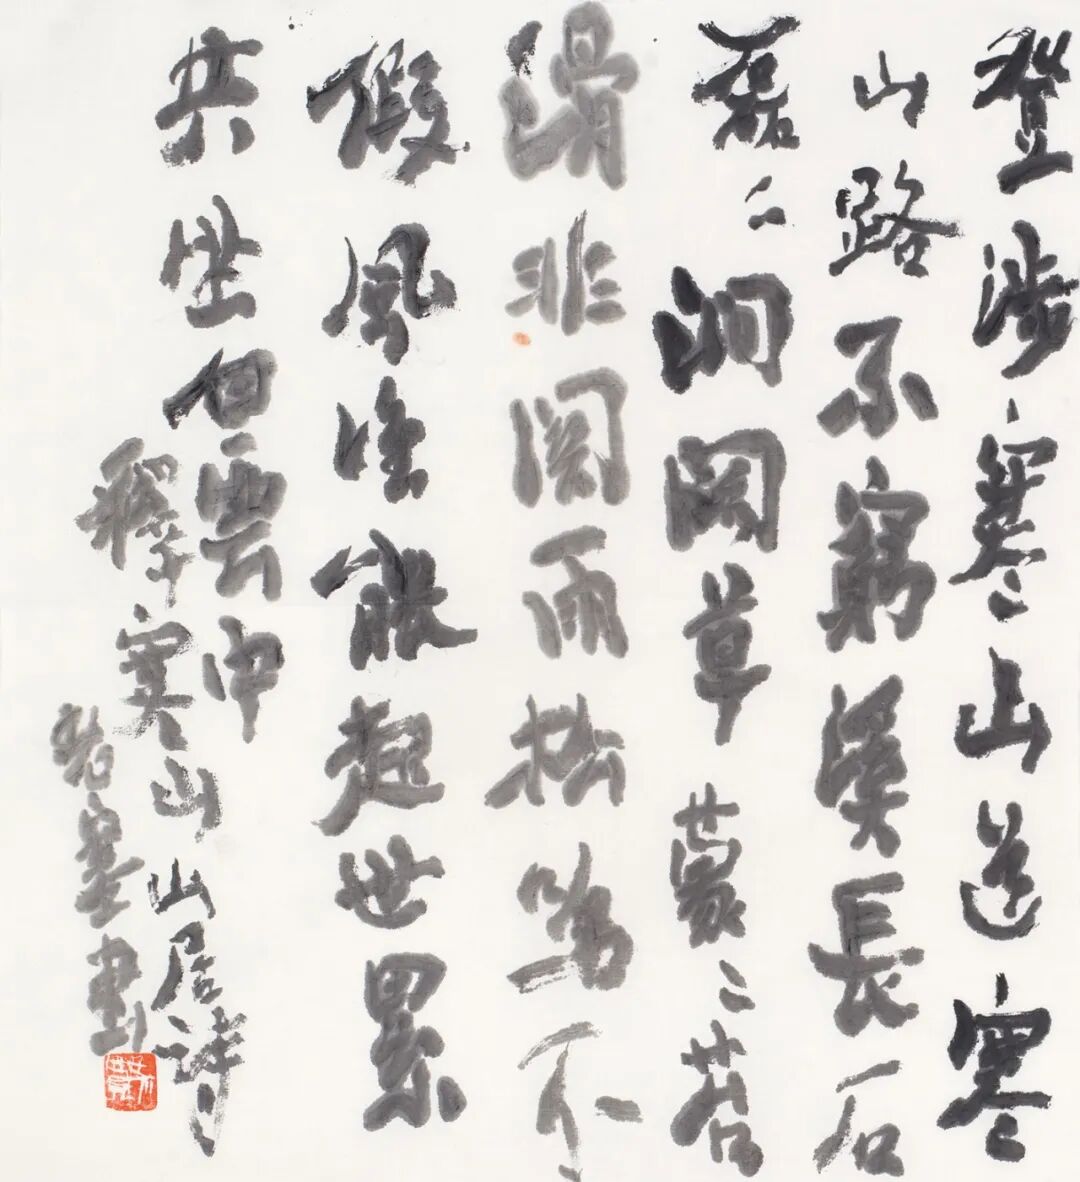 登涉寒山道寒
山路不窮溪長石
磊〻澗闊草蒙〻苔
滑非關雨松鳴不
假風誰能超世累
共坐白雲中
釋寒山山居詩